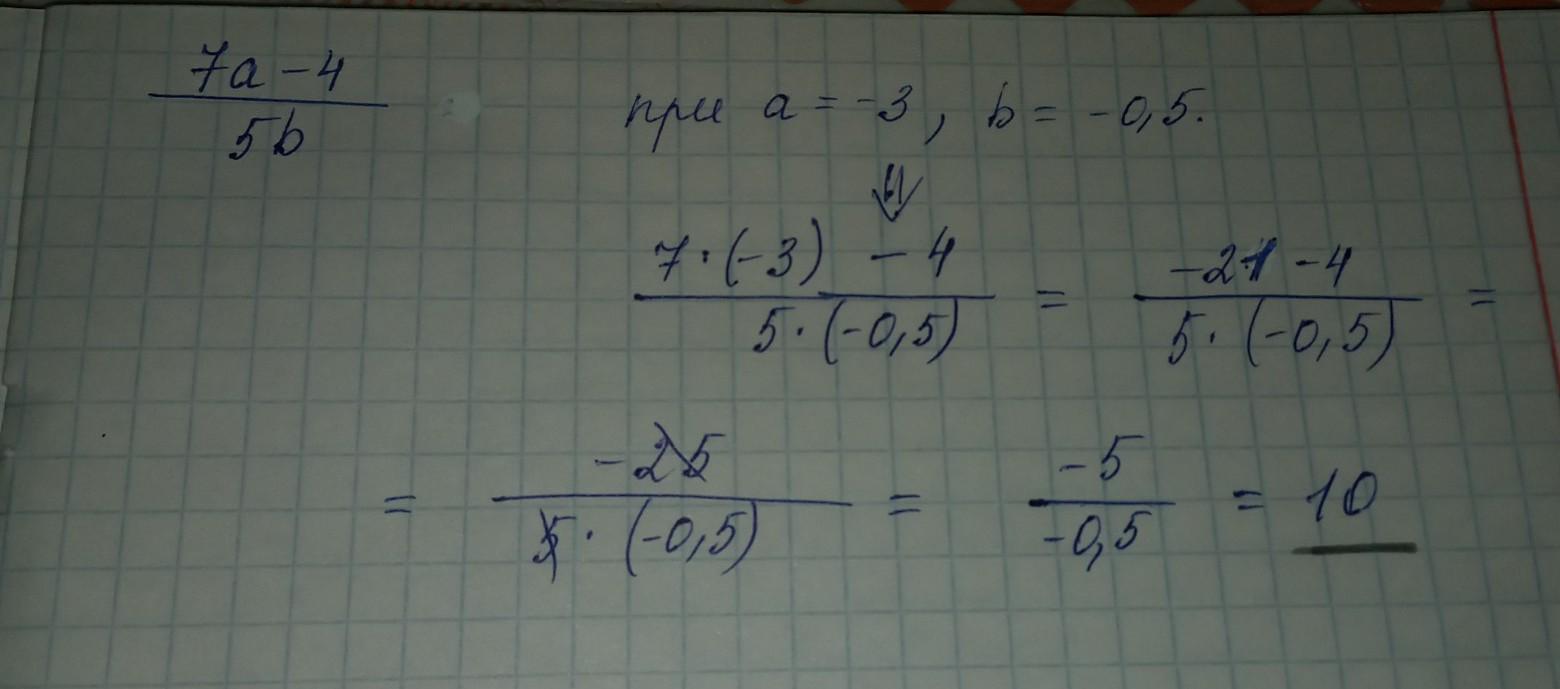 7a - 4 / 5b при a = -3, b = -0,5.
7·(-3) - 4 / 5·(-0,5) = -21 - 4 / 5·(-0,5) =
= -25 / 5·(-0,5) = -5 / -0,5 = 10